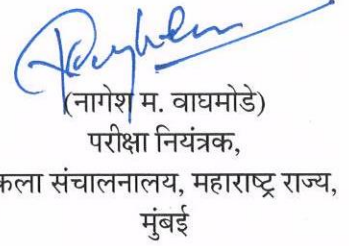 (नागेश म. वाघमोडे)
परीक्षा नियंत्रक,
कला संचालनालय, महाराष्ट्र राज्य,
मुंबई